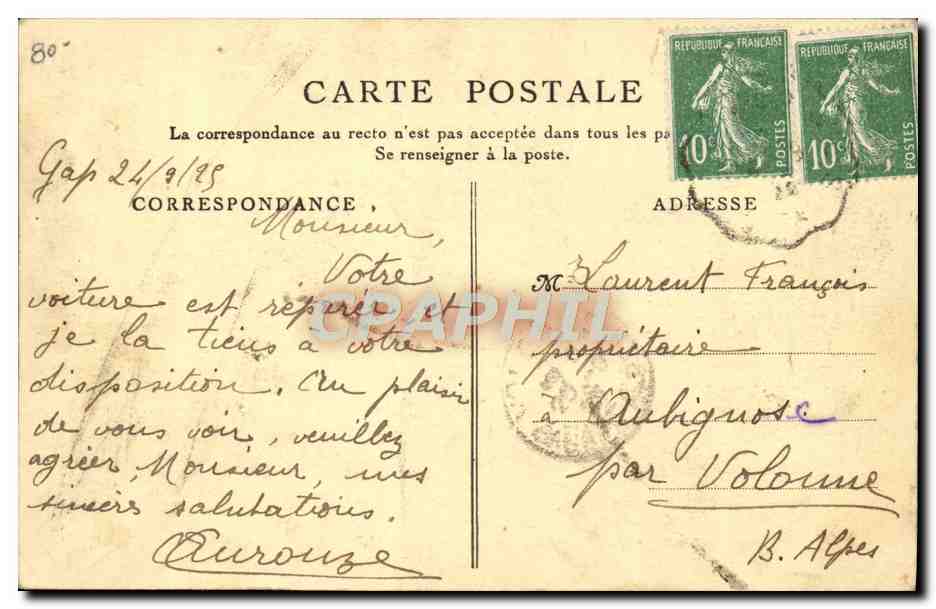 80
CARTE POSTALE
La correspondance au recto n'est pas acceptée dans tous les pa
Se renseigner à la poste.
RÉPUBLIQUE FRANÇAISE
10c POSTES
RÉPUBLIQUE FRANÇAISE
10c POSTES
Gap 24/9/25
CORRESPONDANCE
Monsieur,
Votre
voiture est réparée et
je la tiens à votre
disposition. Au plaisir
de vous voir, veuillez
agréer, Monsieur, mes
sincères salutations.
Aurouze
ADRESSE
Mr Laurent François
propriétaire
à Aubignosc
par Volonne
B. Alpes
CPAPHIL